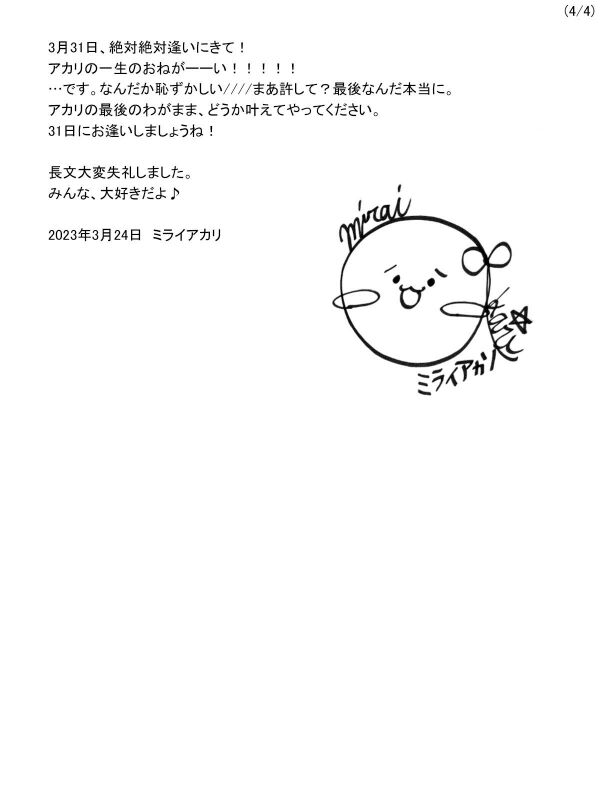 (4/4)
3月31日、絶対絶対逢いにきて！
アカリの一生のおねがーーい！！！！！
…です。なんだか恥ずかしい////まあ許して？最後なんだ本当に。
アカリの最後のわがまま、どうか叶えてやってください。
31日にお逢いしましょうね！
長文大変失礼しました。
みんな、大好きだよ♪
2023年3月24日　ミライアカリ
mirai
ミライアカリ